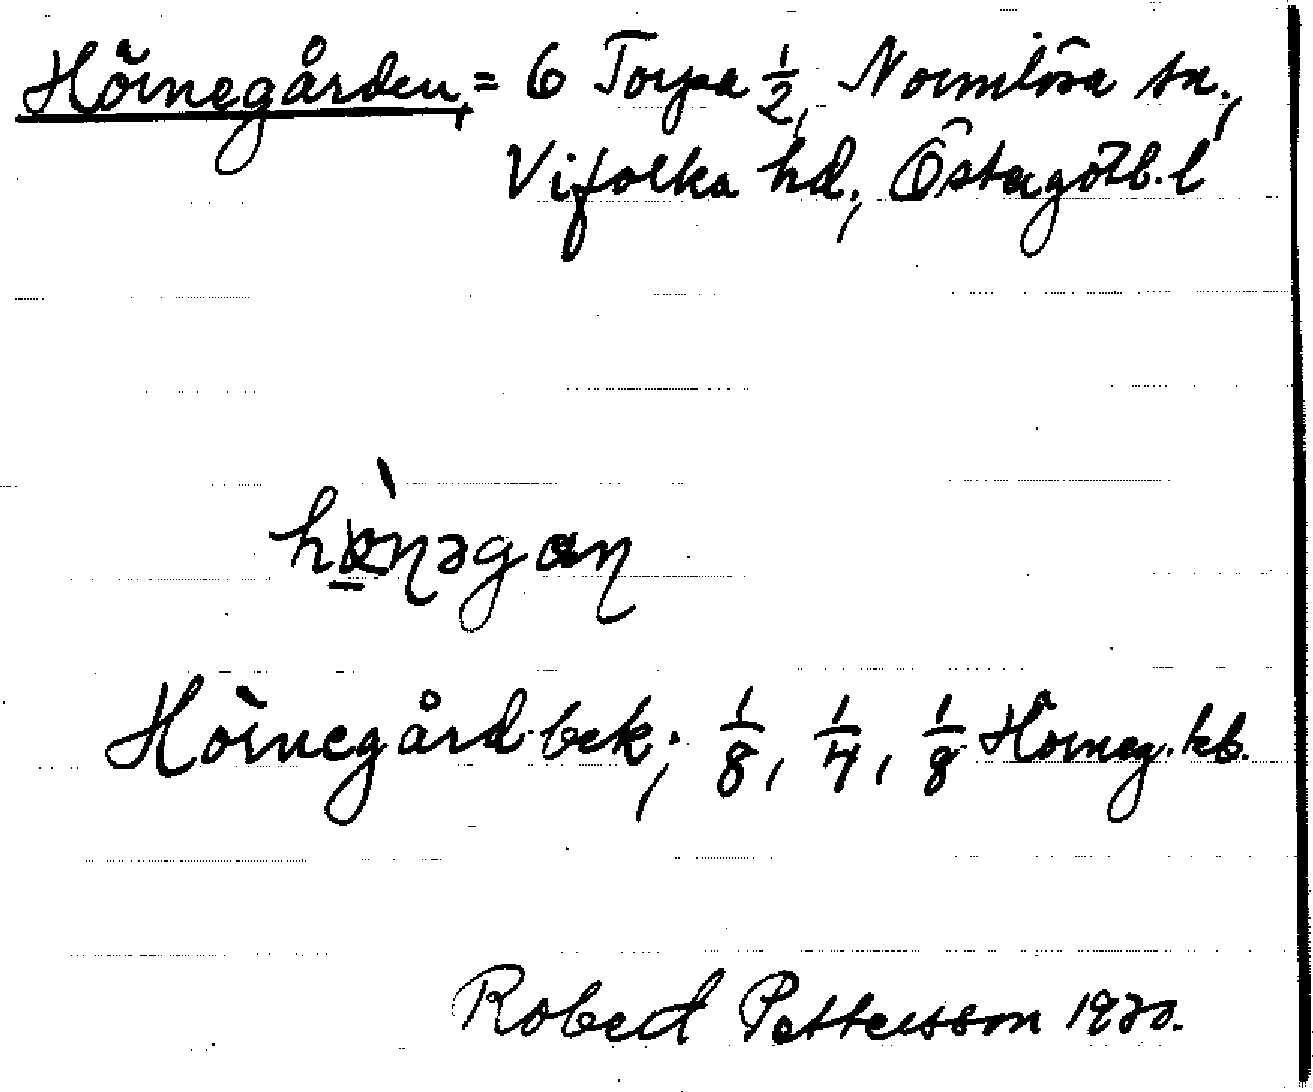 Hörnegården, = 6 Torpa 1/2, Normlösa sn.,
Vifolka hd., Östergötl. l
Hörnegård bek., 1/8, 1/4, 1/8 Hörneg. kb.
Robert Pettersson 1920.